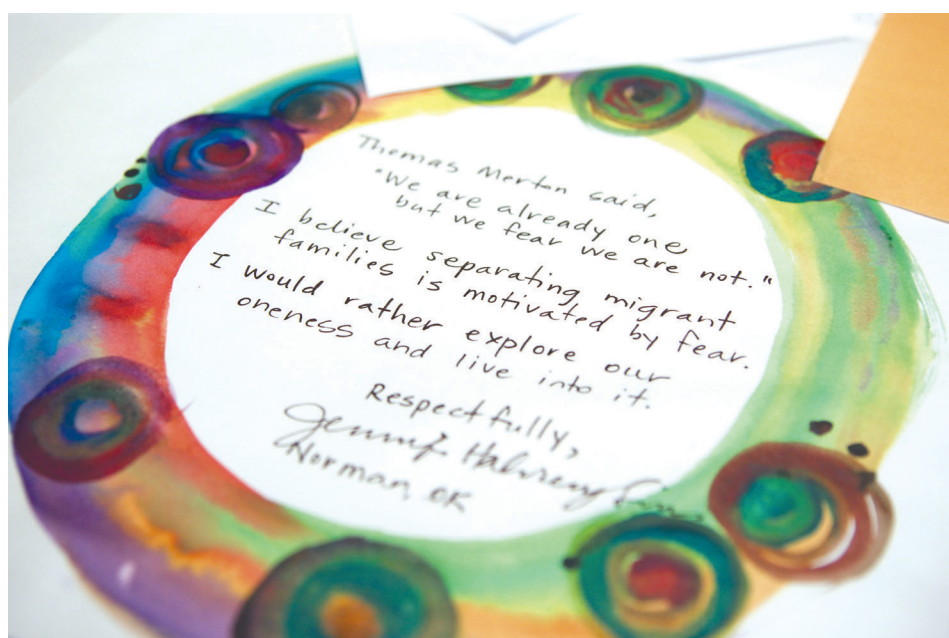 Thomas Merton said,
"We are already one,
but we fear we are not."
I believe separating migrant
families is motivated by fear.
I would rather explore our
oneness and live into it.
Respectfully,
Norman, OK